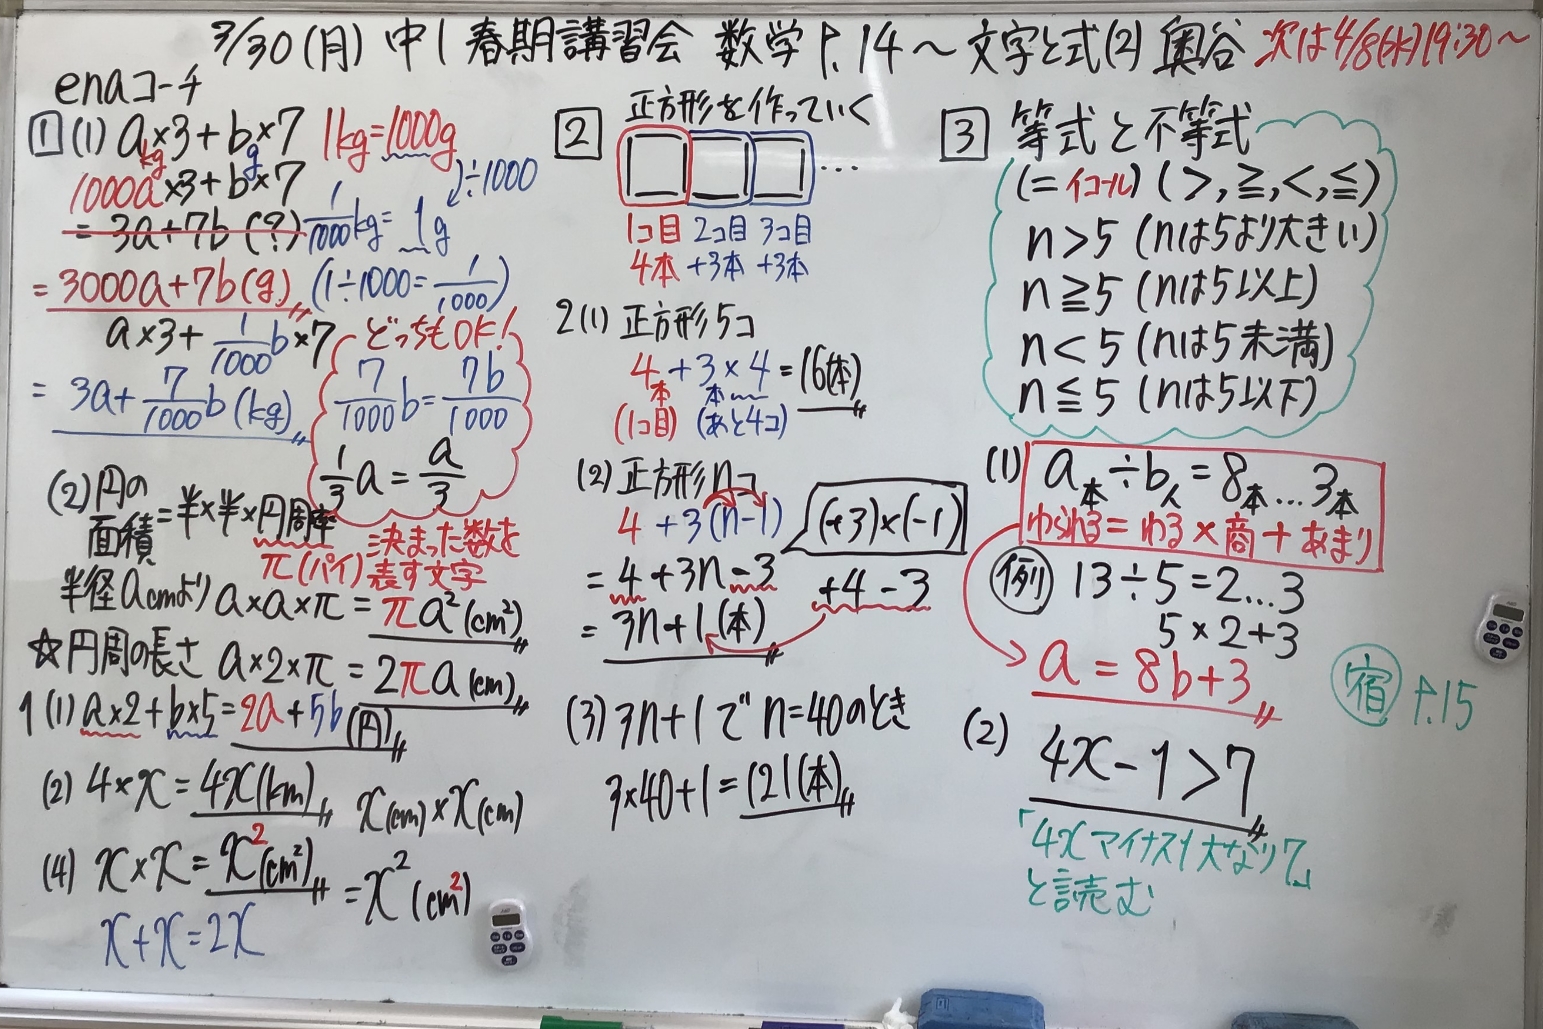 3/30(月) 中1 春期講習会 数学 P.14～文字と式(2) 奥谷 次は4/8(水)19:30～
enaコーチ
1 (1) a×3+b×7 1kg=1000g
kg g
1000a×3+b×7 ÷1000
= 3a+7b(?) 1/1000kg=1g
= 3000a+7b(g) (1÷1000=1/1000)
a×3+1/1000b×7
= 3a+7/1000b(kg)
どっちもOK!
7/1000b=7b/1000
1/3a=a/3
(2) 円の面積=半×半×円周率
π(パイ) 決まった数を表す文字
半径acmより a×a×π=πa²(cm²)
☆円周の長さ a×2×π=2πa(cm)
1(1) a×2+b×5=2a+5b(円)
(2) 4×x=4x(km)
x(cm)×x(cm)
=x²(cm²)
(4) x×x=x²(cm²)
x+x=2x
2 正方形を作っていく
…
1コ目 2コ目 3コ目
4本 +3本 +3本
2(1) 正方形5コ
4+3×4=16(本)
本 本
(1コ目) (あと4コ)
(2) 正方形nコ
4+3(n-1) (+3)×(-1)
=4+3n-3 +4-3
=3n+1(本)
(3) 3n+1でn=40のとき
3×40+1=121(本)
3 等式と不等式
(=イコール) (>,≧,<,≦)
n>5 (nは5より大きい)
n≧5 (nは5以上)
n<5 (nは5未満)
n≦5 (nは5以下)
(1) a本÷b人=8本…3本
わられる=わる×商+あまり
例 13÷5=2…3
5×2+3
a=8b+3
(2) 4x-1>7
「4xマイナス1大なり7」
と読む
宿 P.15